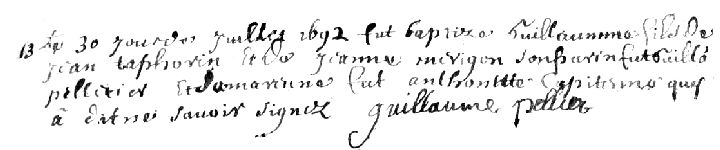 le 30 jour de juillet 1692 fut baptize Guillaumme fils de
jean taphorin et de jeanne merigon son parin fut Guill
pelletier et sa marenne fut anthonette
a dit ne savoir signez guillaume pelletier